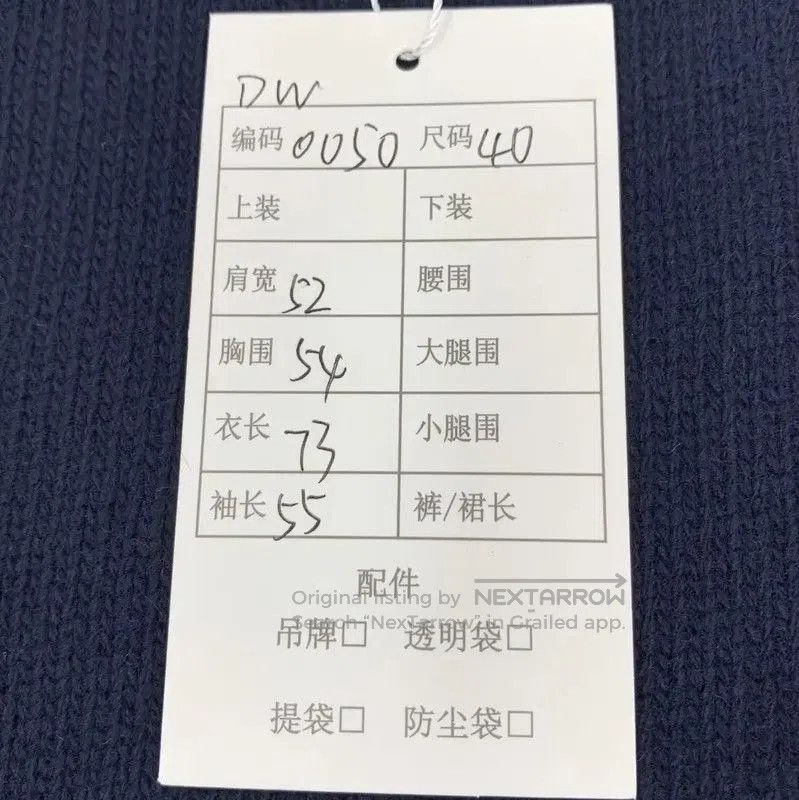 DW
编码 0050 尺码 40
上装 下装
肩宽 52 腰围
胸围 54 大腿围
衣长 73 小腿围
袖长 55 裤/裙长
配件
Original listing by NEXTARROW
Search "NexTarrow" in Grailed app.
吊牌□ 透明袋□
提袋□ 防尘袋□